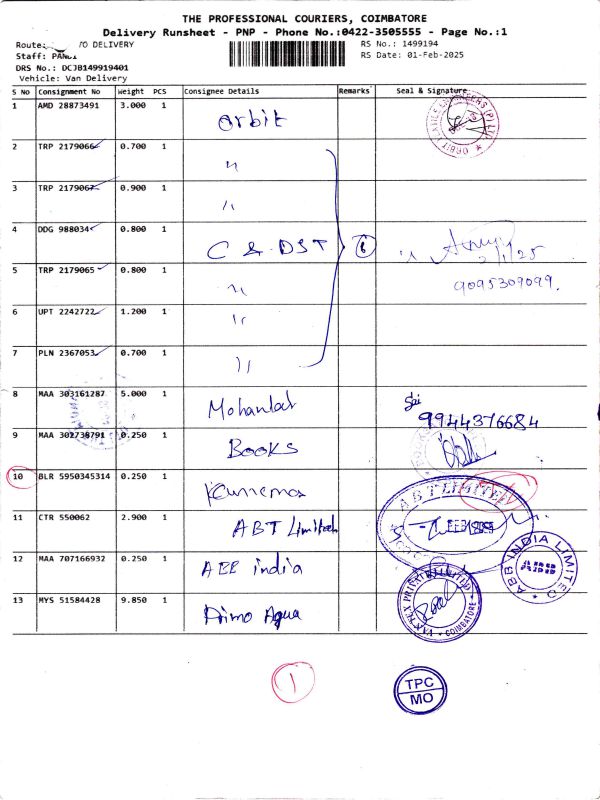 THE PROFESSIONAL COURIERS, COIMBATORE
Delivery Runsheet - PNP - Phone No.:0422-3505555 - Page No.:1
Route: TO DELIVERY
RS No.: 1499194
Staff: PANDI
RS Date: 01-Feb-2025
DRS No.: DCJB149919401
Vehicle: Van Delivery
S No Consignment No Weight PCS Consignee Details Remarks Seal & Signature
1 AMD 28873491 3.000 1 Orbit
2 TRP 2179066 0.700 1 "
3 TRP 2179067 0.900 1 "
4 DDG 988034 0.800 1 C & DST 6 2/1/25
5 TRP 2179065 0.800 1 " 9095309099.
6 UPT 2242722 1.200 1 "
7 PLN 2367053 0.700 1 "
8 MAA 303161287 5.000 1 Mohanlal Sai 9944376684
9 MAA 302738791 0.250 1 Books
10 BLR 5950345314 0.250 1
ABT LIMITED
11 CTR 550062 2.900 1 ABT Limited
12 MAA 707166932 0.250 1 ABB india
ABB INDIA LIMITED
ABB
13 MYS 51584428 9.850 1 Primo Aqua
PRIVATE LIMITED
COIMBATORE
1
TPC
MO